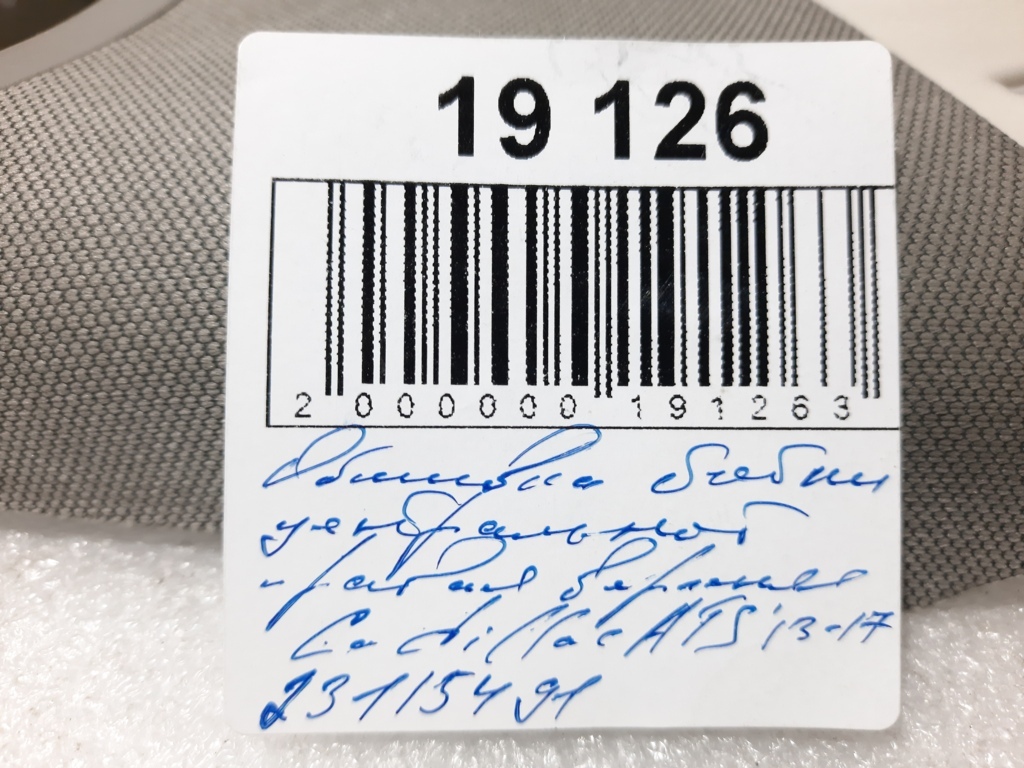 19 126
2 000000 191263
Обшивка стойки
центральной
правая верхняя
Cadillac ATS 13-17
23115491